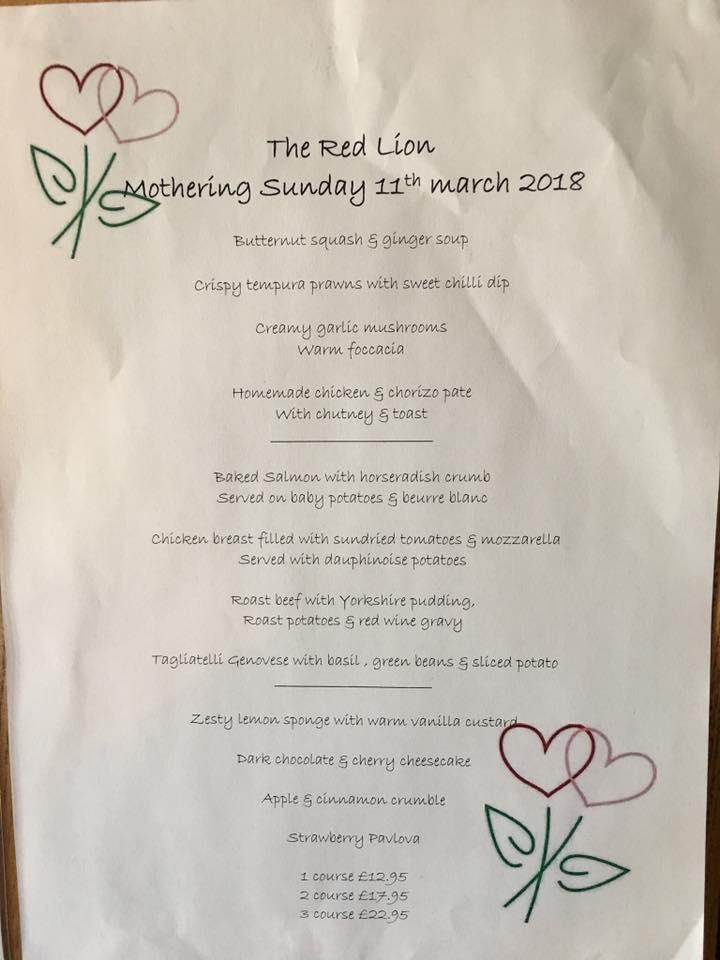 The Red Lion
Mothering Sunday 11th march 2018
Butternut squash & ginger soup
Crispy tempura prawns with sweet chilli dip
Creamy garlic mushrooms
Warm foccacia
Homemade chicken & chorizo pate
With chutney & toast
Baked Salmon with horseradish crumb
Served on baby potatoes & beurre blanc
Chicken breast filled with sundried tomatoes & mozzarella
Served with dauphinoise potatoes
Roast beef with Yorkshire pudding,
Roast potatoes & red wine gravy
Tagliatelli Genovese with basil , green beans & sliced potato
Zesty lemon sponge with warm vanilla custard
Dark chocolate & cherry cheesecake
Apple & cinnamon crumble
Strawberry Pavlova
1 course £12.95
2 course £17.95
3 course £22.95